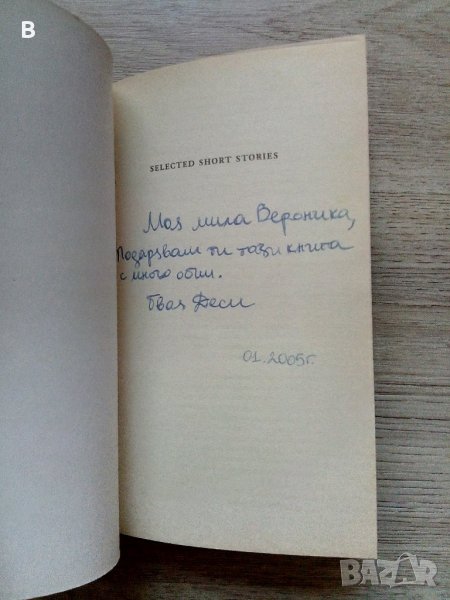 B
SELECTED SHORT STORIES
Моя мила Вероника,
Подарявам ти тази книга
с много обич.
Твоя Деси
01.2005г.
BAZAR